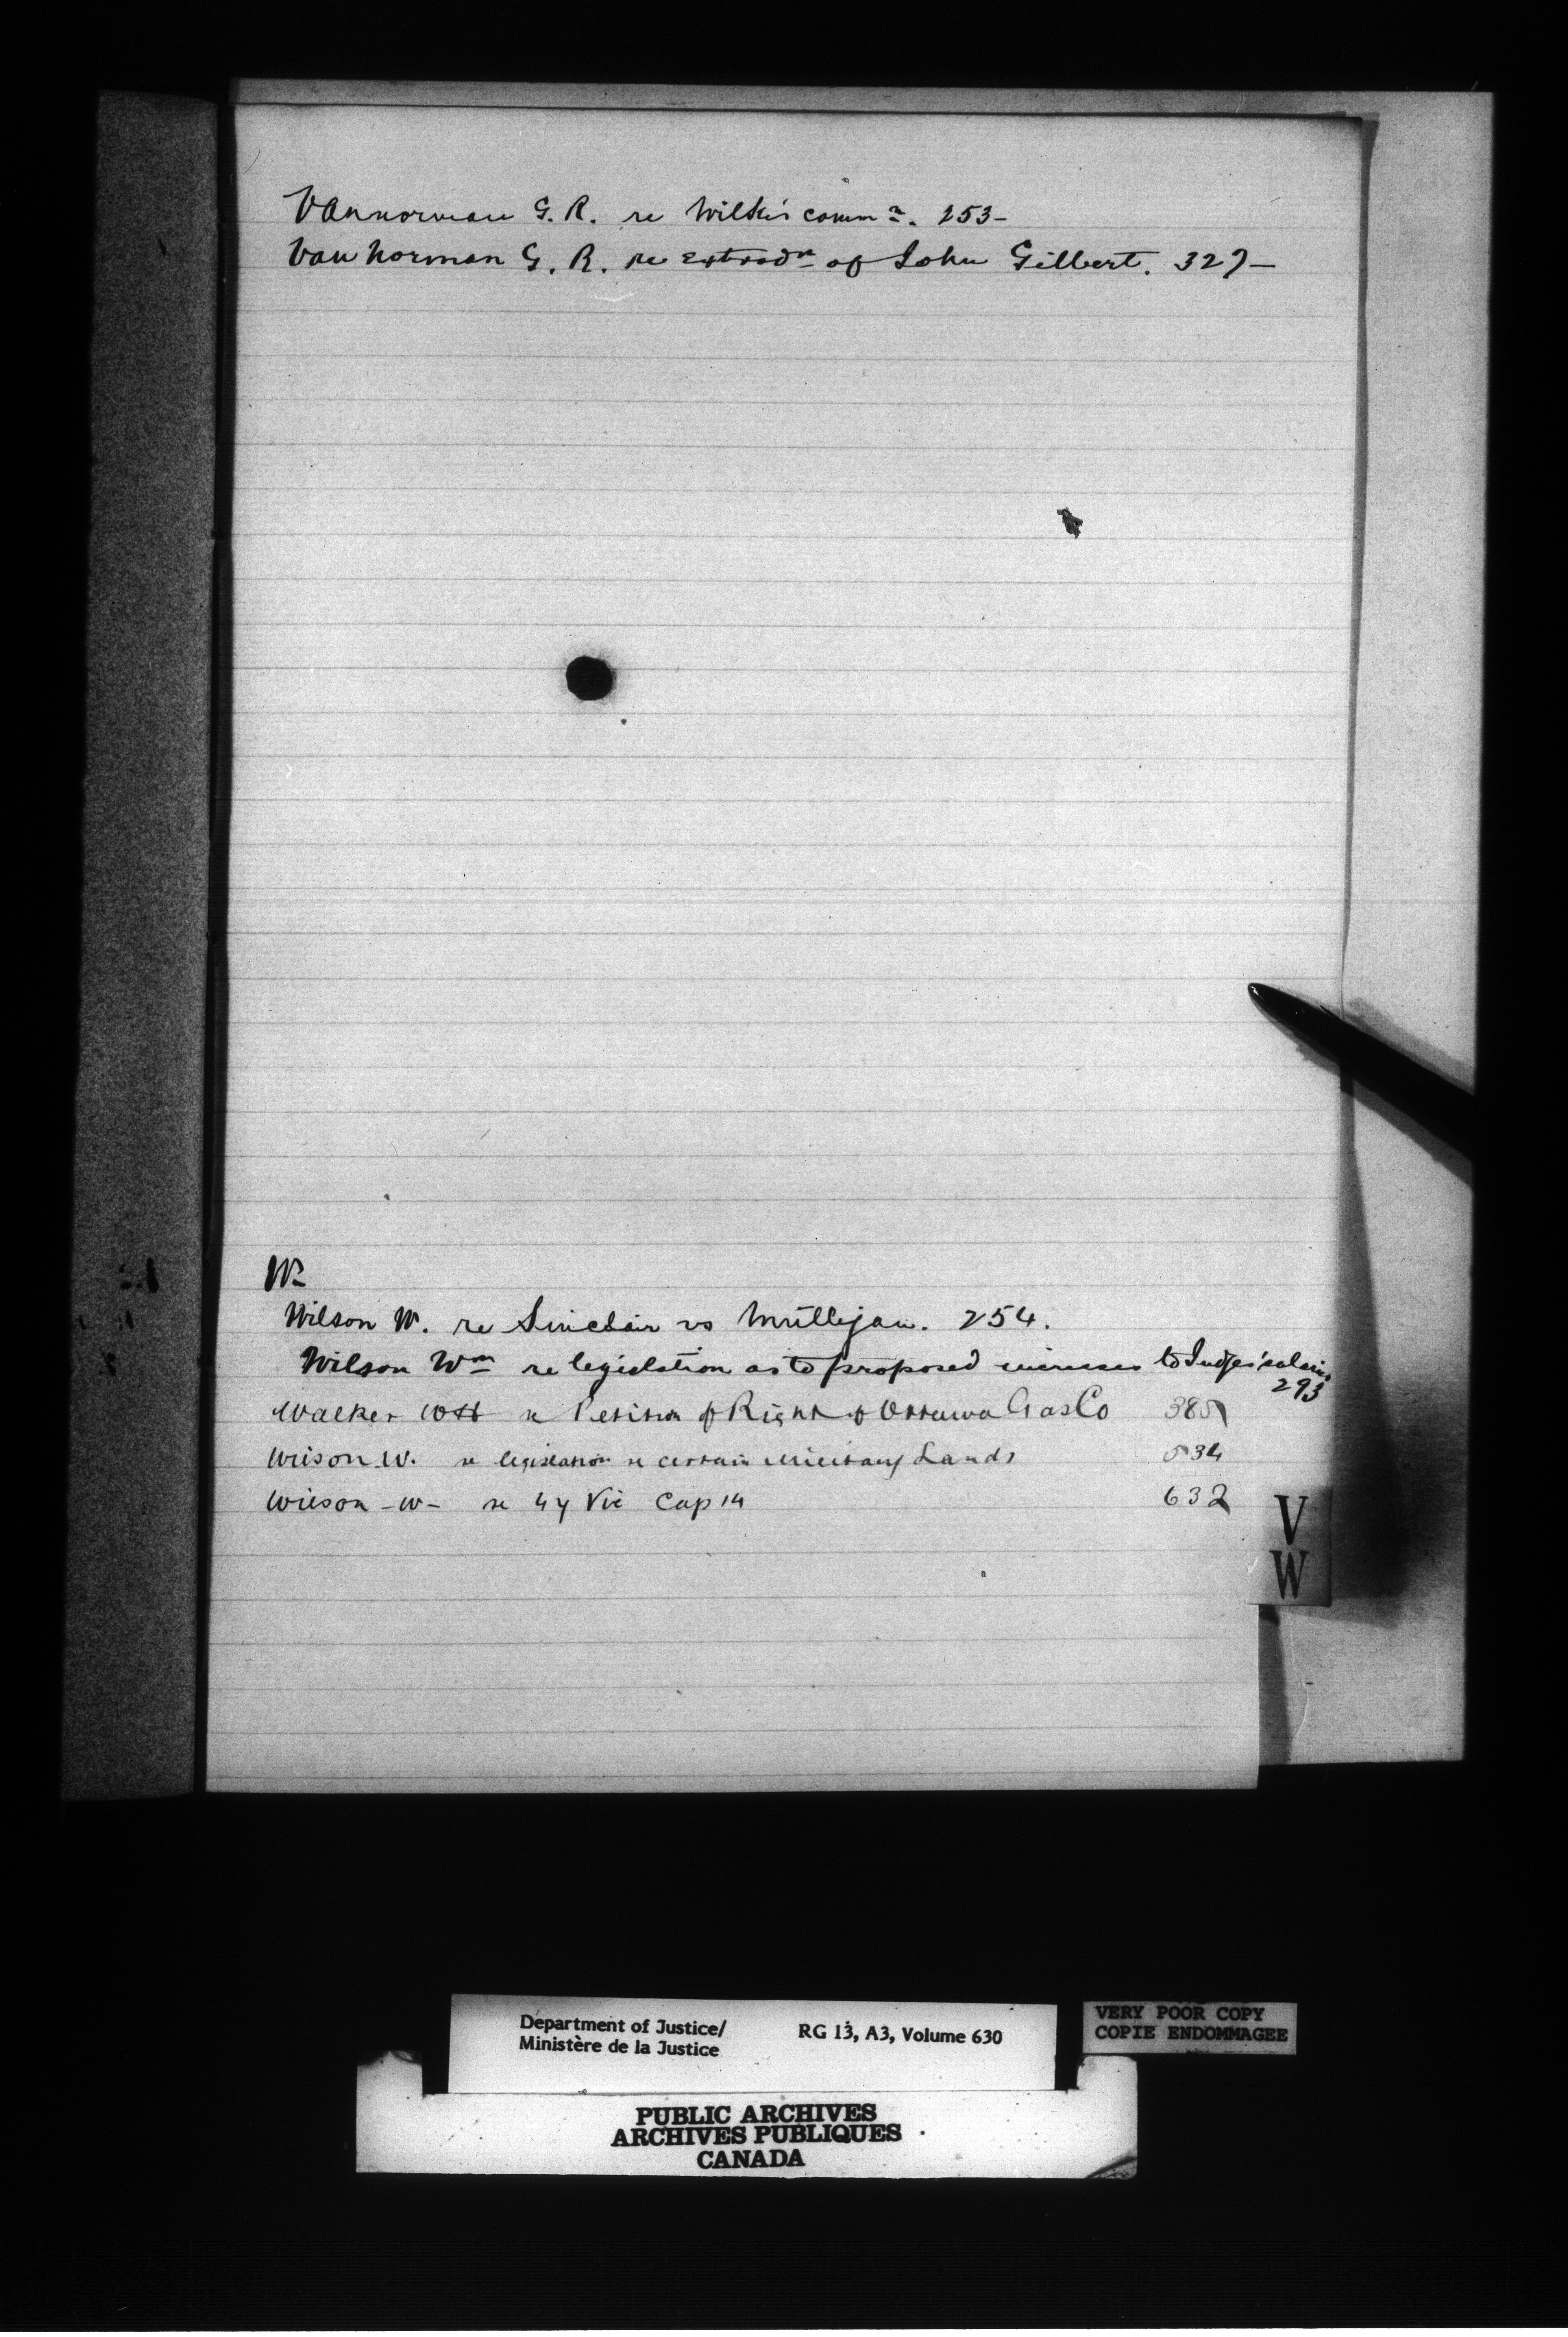 Vannorman G. R. re Wilkes comm.n. 253-
Van Norman G. R. re Extradn of John Gilbert. 327-
W-
Wilson W. re Sinclair vs Mulligan. 254.
Wilson Wm re legislation as to proposed increase to Judges' salaries
293
Walker WH re Petition of Right of Ottawa Gas Co 385
Wilson W. re legislation re certain Military Lands 534
Wilson -W- re 47 Vic Cap 14 632
V
W
Department of Justice/
Ministère de la Justice
RG 13, A3, Volume 630
VERY POOR COPY
COPIE ENDOMMAGEE
PUBLIC ARCHIVES
ARCHIVES PUBLIQUES
CANADA